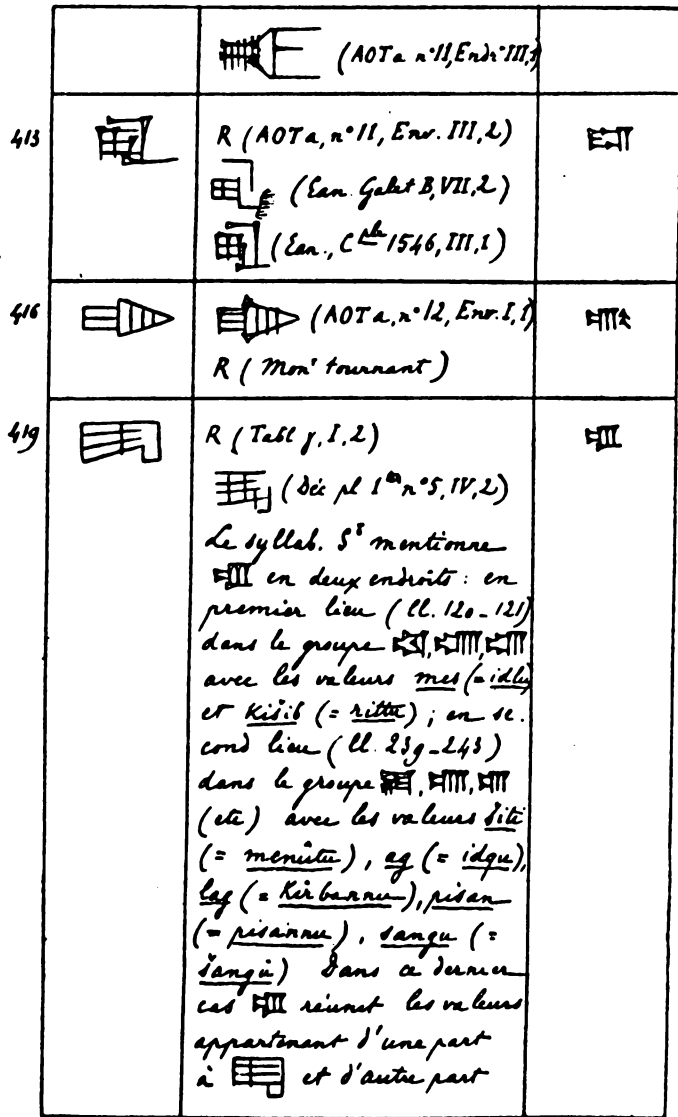 (AOTa n° 11, Endr III, 1)
413 R (AOTa, n° 11, Env. III, 2)
(Ean. Galet B, VII, 2)
(Ean., C^ple 1546, III, I)
416 (AOTa, n° 12, Env. I, 1)
R (Mon^t tournant)
419 R (Tabl γ, I, 2)
(Déc pl I^ter n° 5, IV, 2)
Le syllab. S^b mentionne
en deux endroits : en
premier lieu (ll. 120-121)
dans le groupe , ,
avec les valeurs mes (= idlu)
et Kišib (= rittu) ; en se-
cond lieu (ll. 239-243)
dans le groupe , ,
(etc) avec les valeurs šiti
(= menûtu), ag (= idqu),
lag (= Kirbannu), pisan
(= pisannu), sangu (=
šangû) Dans ce dernier
cas réunit les valeurs
appartenant d'une part
à et d'autre part